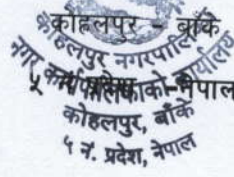 कोहलपुर - बाँके
कोहलपुर नगरपालिका
नगर कार्यपालिकाको कार्यालय
५ नं. प्रदेश, नेपाल
कोहलपुर, बाँके
५ नं. प्रदेश, नेपाल